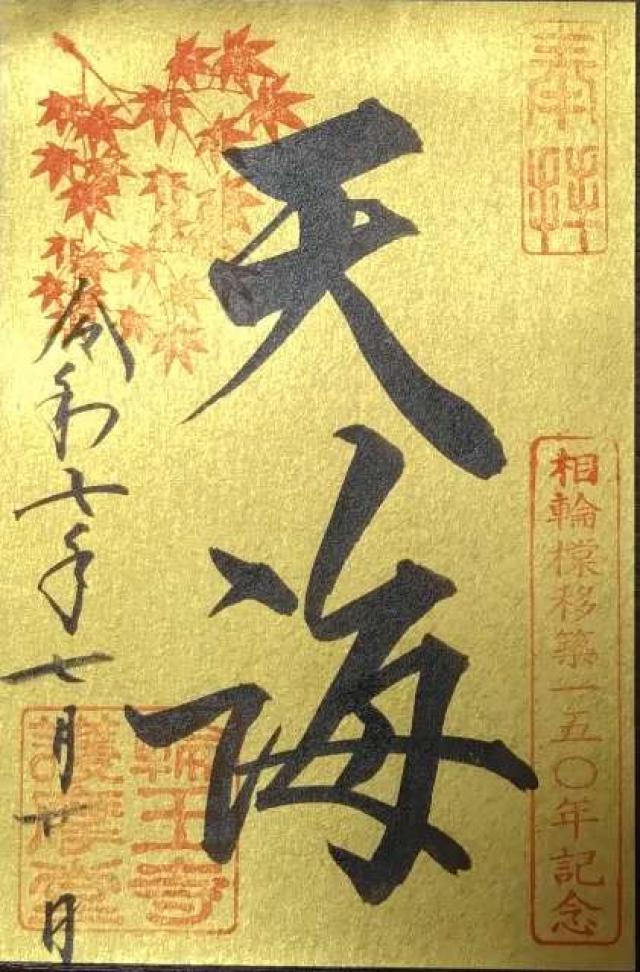 奉拝
相輪橖移築一五〇年記念
天海
令和七年七月廿日
輪王寺
護摩堂